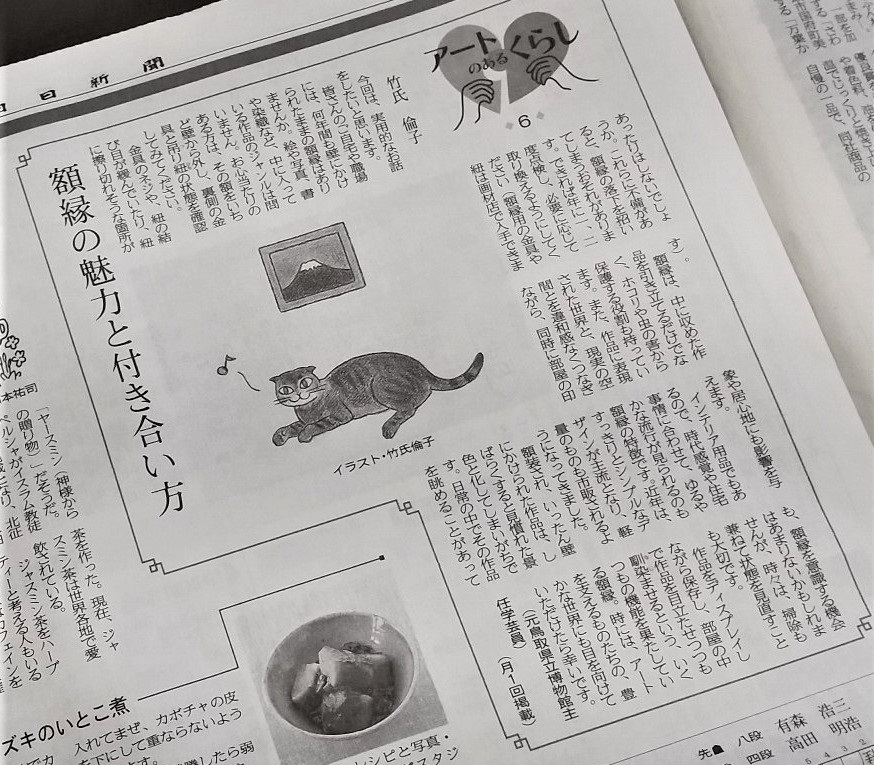 日日新聞
アートのあるくらし
6
額縁の魅力と付き合い方
竹氏 倫子
今回は、実用的なお話
をしたいと思います。
皆さんのご自宅や職場
には、何年間も壁にかけ
られたままの額縁はあり
ませんか。絵や写真、書
や染織など、中に入って
いる作品のジャンルは問
いません。お心当たりの
ある方は、その額をいち
ど壁から外し、裏側の金
具と吊り紐の状態を確認
してみてください。
金具のネジや、紐の結
び目が緩んでいたり、紐
に擦り切れそうな箇所が
あったりはしないでしょ
うか。これらに不備があ
ると、額縁の落下を招い
てしまうおそれがありま
す。できれば年に一、二
度点検し、必要に応じて
取り換えるようにしてく
ださい（額縁用の金具や
紐は画材店で入手できま
す）。
額縁は、中に収めた作
品を引き立てるだけでな
く、ホコリや虫の害から
保護する役割も持ってい
ます。また、作品に表現
された世界と、現実の空
間とを違和感なくつなぎ
ながら、同時に部屋の印
象や居心地にも影響を与
えます。
インテリア用品でもあ
るので、時代感覚や住宅
事情に合わせて、ゆるや
かな流行が見られるのも
額縁の特徴です。近年は、
すっきりとシンプルなデ
ザインが主流となり、軽
量のものも市販されるよ
うになってきました。
額装され、いったん壁
にかけられた作品は、し
ばらくすると見慣れた景
色と化してしまいがちで
す。日常の中でその作品
を眺めることがあって
も、額縁を意識する機会
はあまりないかもしれま
せんが、時々は、掃除も
兼ねて状態を見直すこと
も大切です。
作品をディスプレイし
ながら保存し、部屋の中
で作品を目立たせつつも
馴染ませるという、いく
つもの機能を果たしてい
る額縁。時には、アート
を支えるものたちの、豊
かな世界にも目を向けて
いただけたら幸いです。
（元鳥取県立博物館主
任学芸員）（月1回掲載）
イラスト・竹氏倫子
本祐司
「ヤースミン（神様から
の贈り物）」だそうだ。
ペルシャがイスラム教徒
北征
茶を作った。現在、ジャ
スミン茶は世界各地で愛
飲されている。
ジャスミン茶をハーブ
ティーと考える人もいる
カフェインを
ズキのいとこ煮
入れてまぜ、カボチャの皮
を下にして重ならないよう
したら弱
シピと写真・
スタジ
先 八段 有森 浩三
四段 高田 明浩